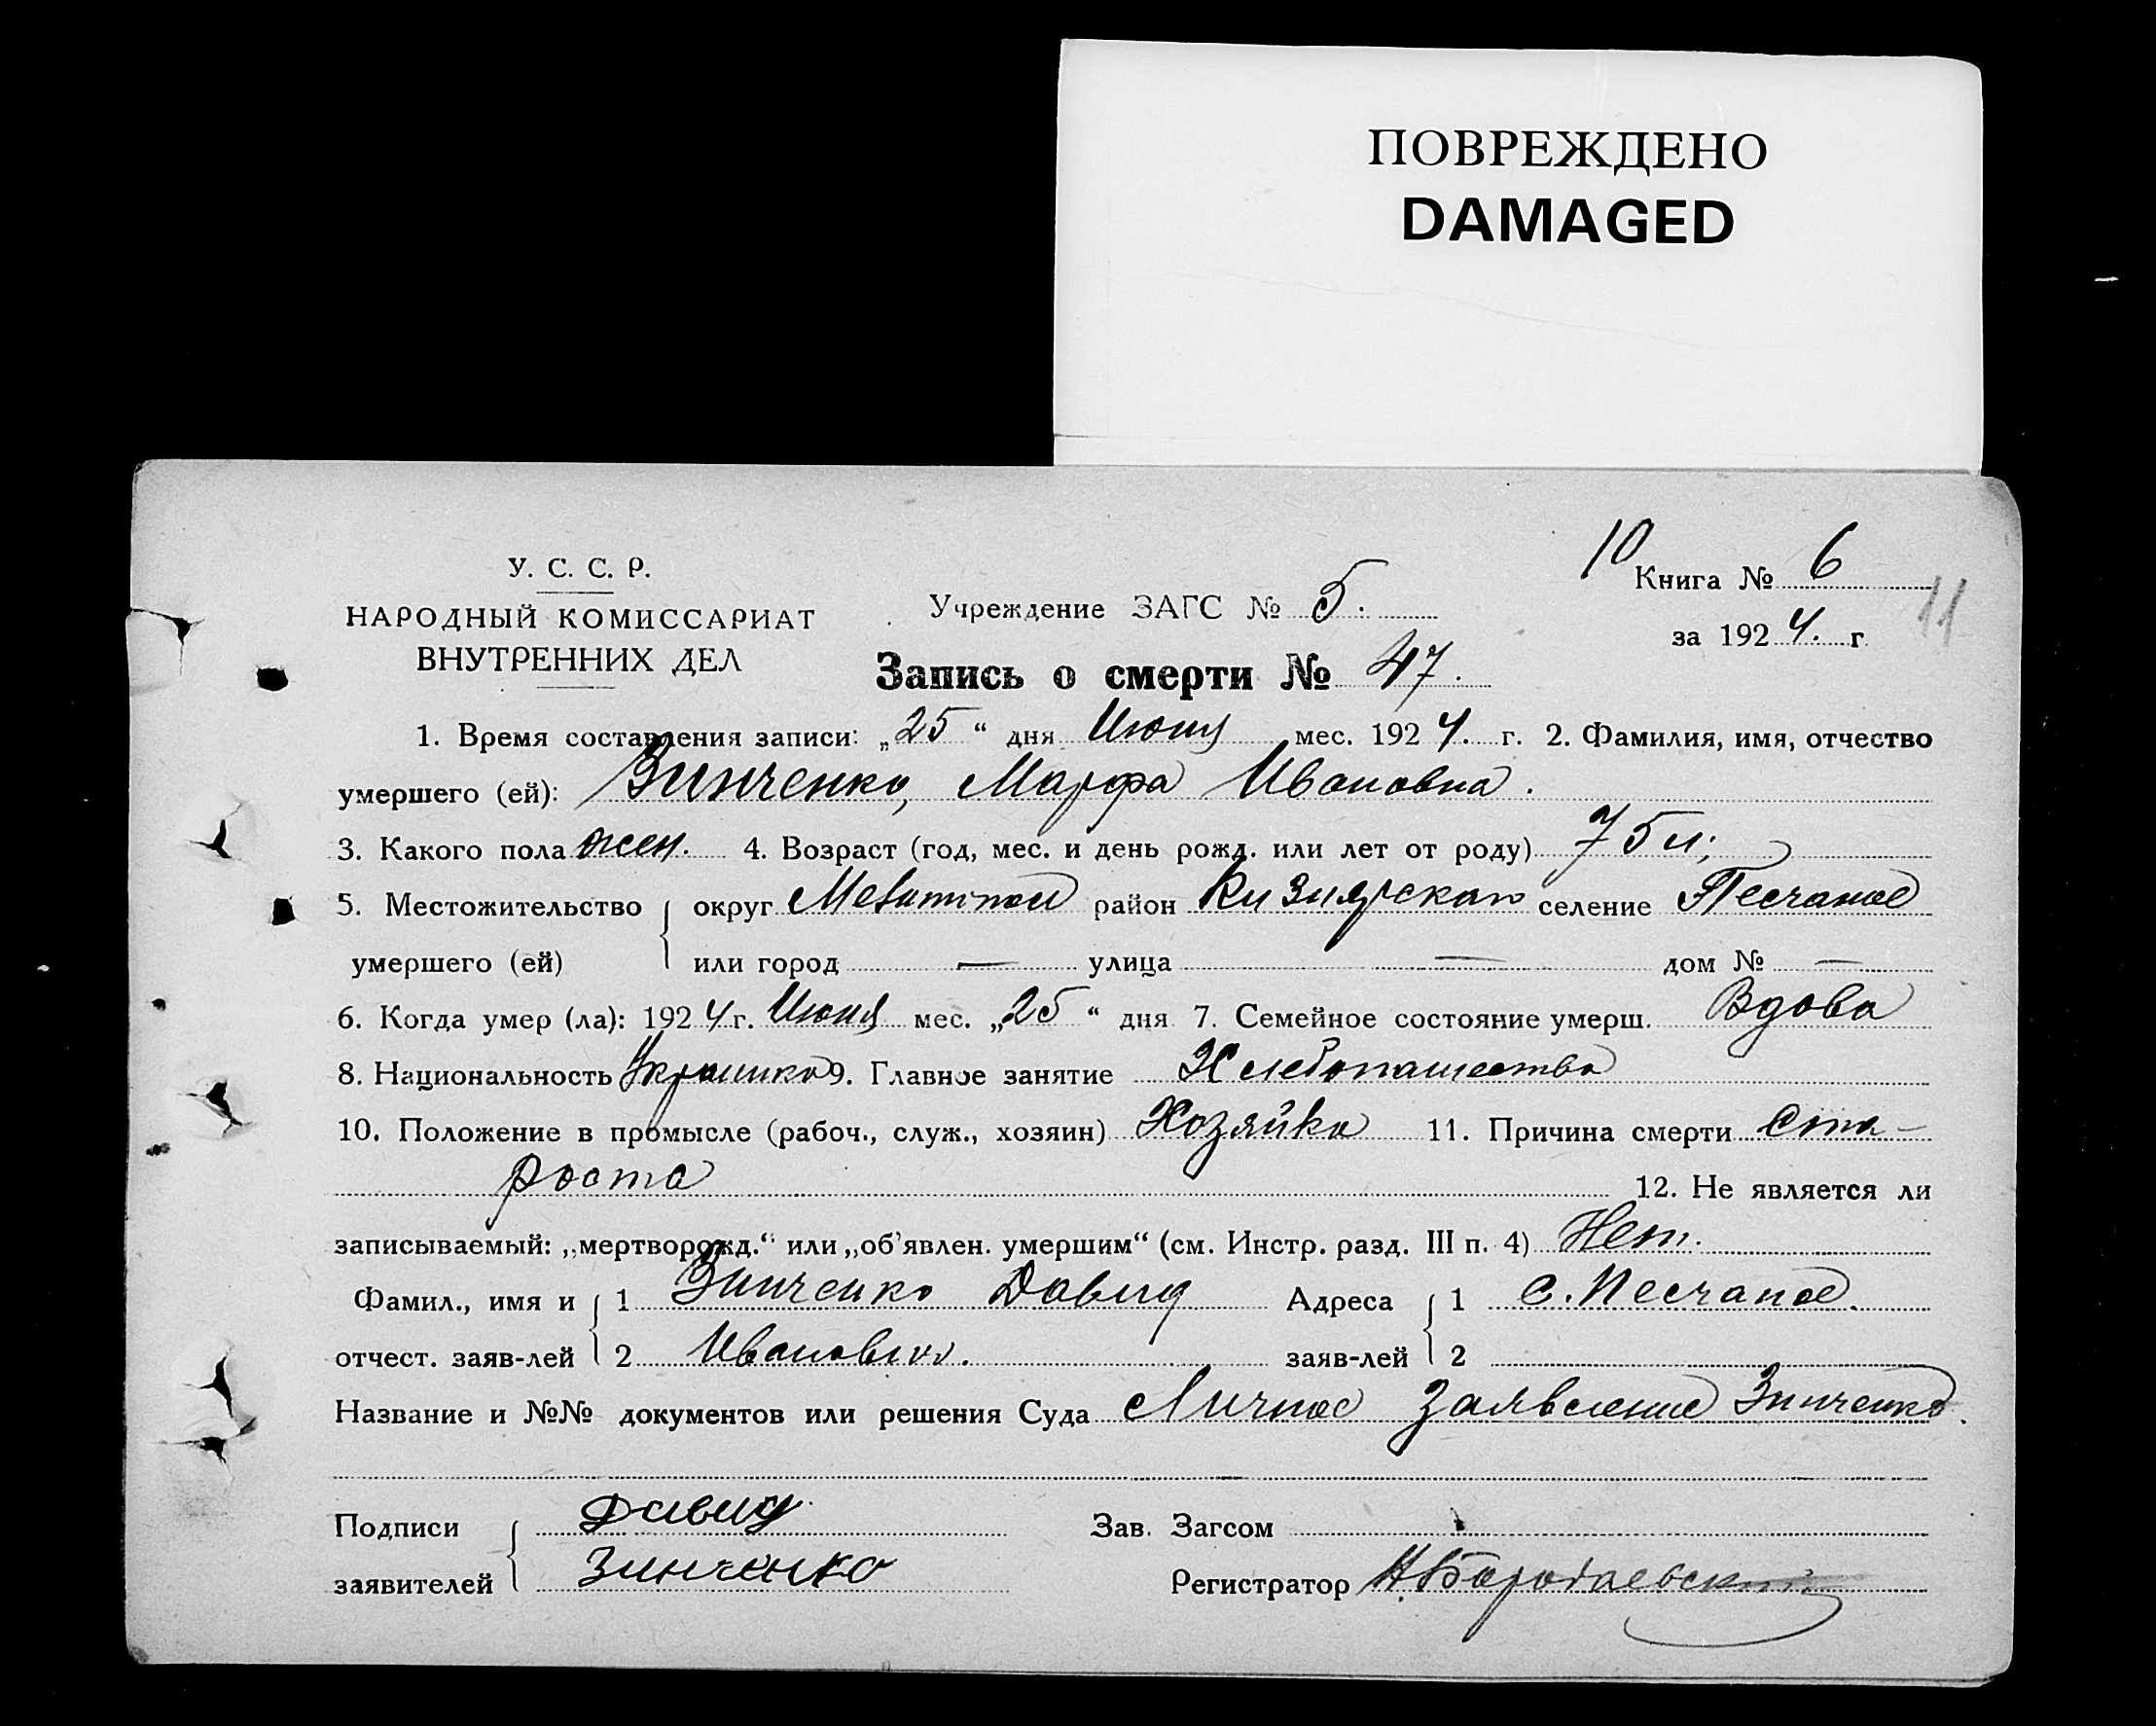 ПОВРЕЖДЕНО
DAMAGED
У. С. С. Р.
НАРОДНЫЙ КОМИССАРИАТ
ВНУТРЕННИХ ДЕЛ
Учреждение ЗАГС № 5.
10 Книга № 6
за 1924. г.
11
Запись о смерти № 47.
1. Время составления записи: „25“ дня Июня мес. 1924. г. 2. Фамилия, имя, отчество
умершего (ей): Зинченко, Марфа Ивановна.
3. Какого пола жен. 4. Возраст (год, мес. и день рожд. или лет от роду) 75 л;
5. Местожительство округ Мелитпол район Кизиярскаго селение Песчаное
умершего (ей) или город — улица — дом № —
6. Когда умер (ла): 1924 г. Июня мес. „25“ дня 7. Семейное состояние умерш. Вдова
8. Национальность Украинка 9. Главное занятие Хлебопашество
10. Положение в промысле (рабоч., служ., хозяин) Хозяйка 11. Причина смерти Ста-
роста 12. Не является ли
записываемый: „мертворожд.“ или „об’явлен. умершим“ (см. Инстр. разд. III п. 4) Нет.
Фамил., имя и 1 Зинченко Давид Адреса 1 с. Песчаное.
отчест. заяв-лей 2 Иванович. заяв-лей 2
Название и №№ документов или решения Суда Личное Заявление Зинченко.
Подписи Давид Зав. Загсом
заявителей Зинченко Регистратор Н. Бородаевский